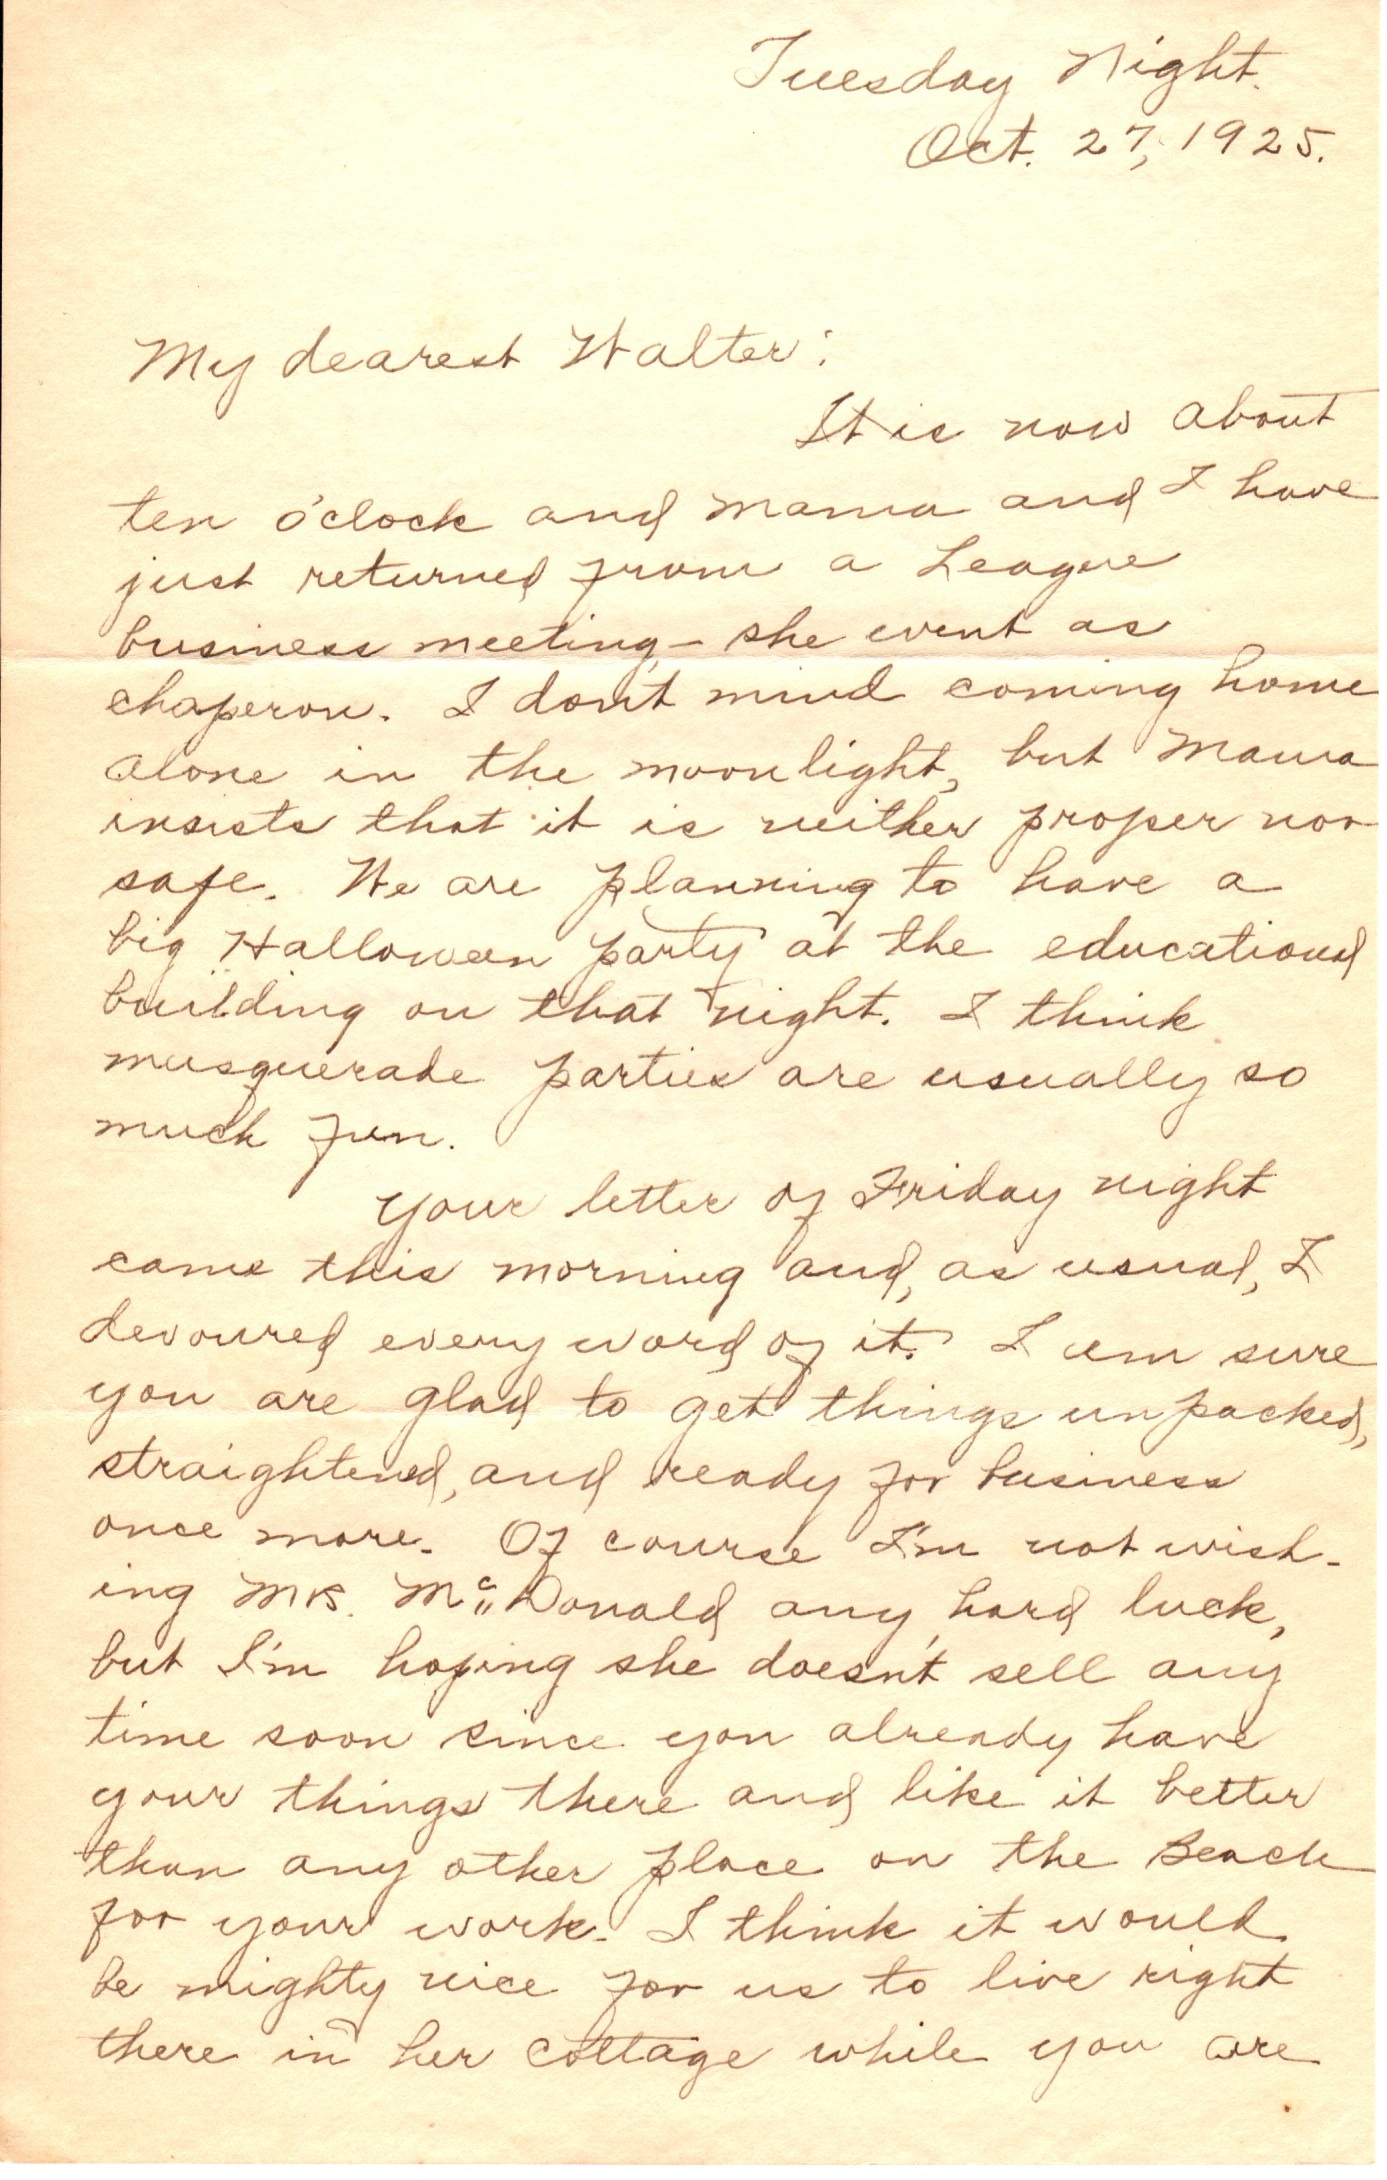 Tuesday Night.
Oct. 27, 1925.
My dearest Walter:
It is now about
ten o'clock and mama and I have
just returned from a League
business meeting - she went as
chaperon. I don't mind coming home
alone in the moonlight, but Mama
insists that it is neither proper nor
safe. We are planning to have a
big Halloween party at the educational
building on that night. I think
musquerade parties are usually so
much fun.
Your letter of Friday night
came this morning and, as usual, I
devoured every word of it. I am sure
you are glad to get things unpacked,
straightened, and ready for business
once more. Of course I'm not wish-
ing Mrs. McDonald any hard luck,
but I'm hoping she doesn't sell any
time soon since you already have
your things there and like it better
than any other place on the Beach
for your work. I think it would
be mighty nice for us to live right
there in her cottage while you are